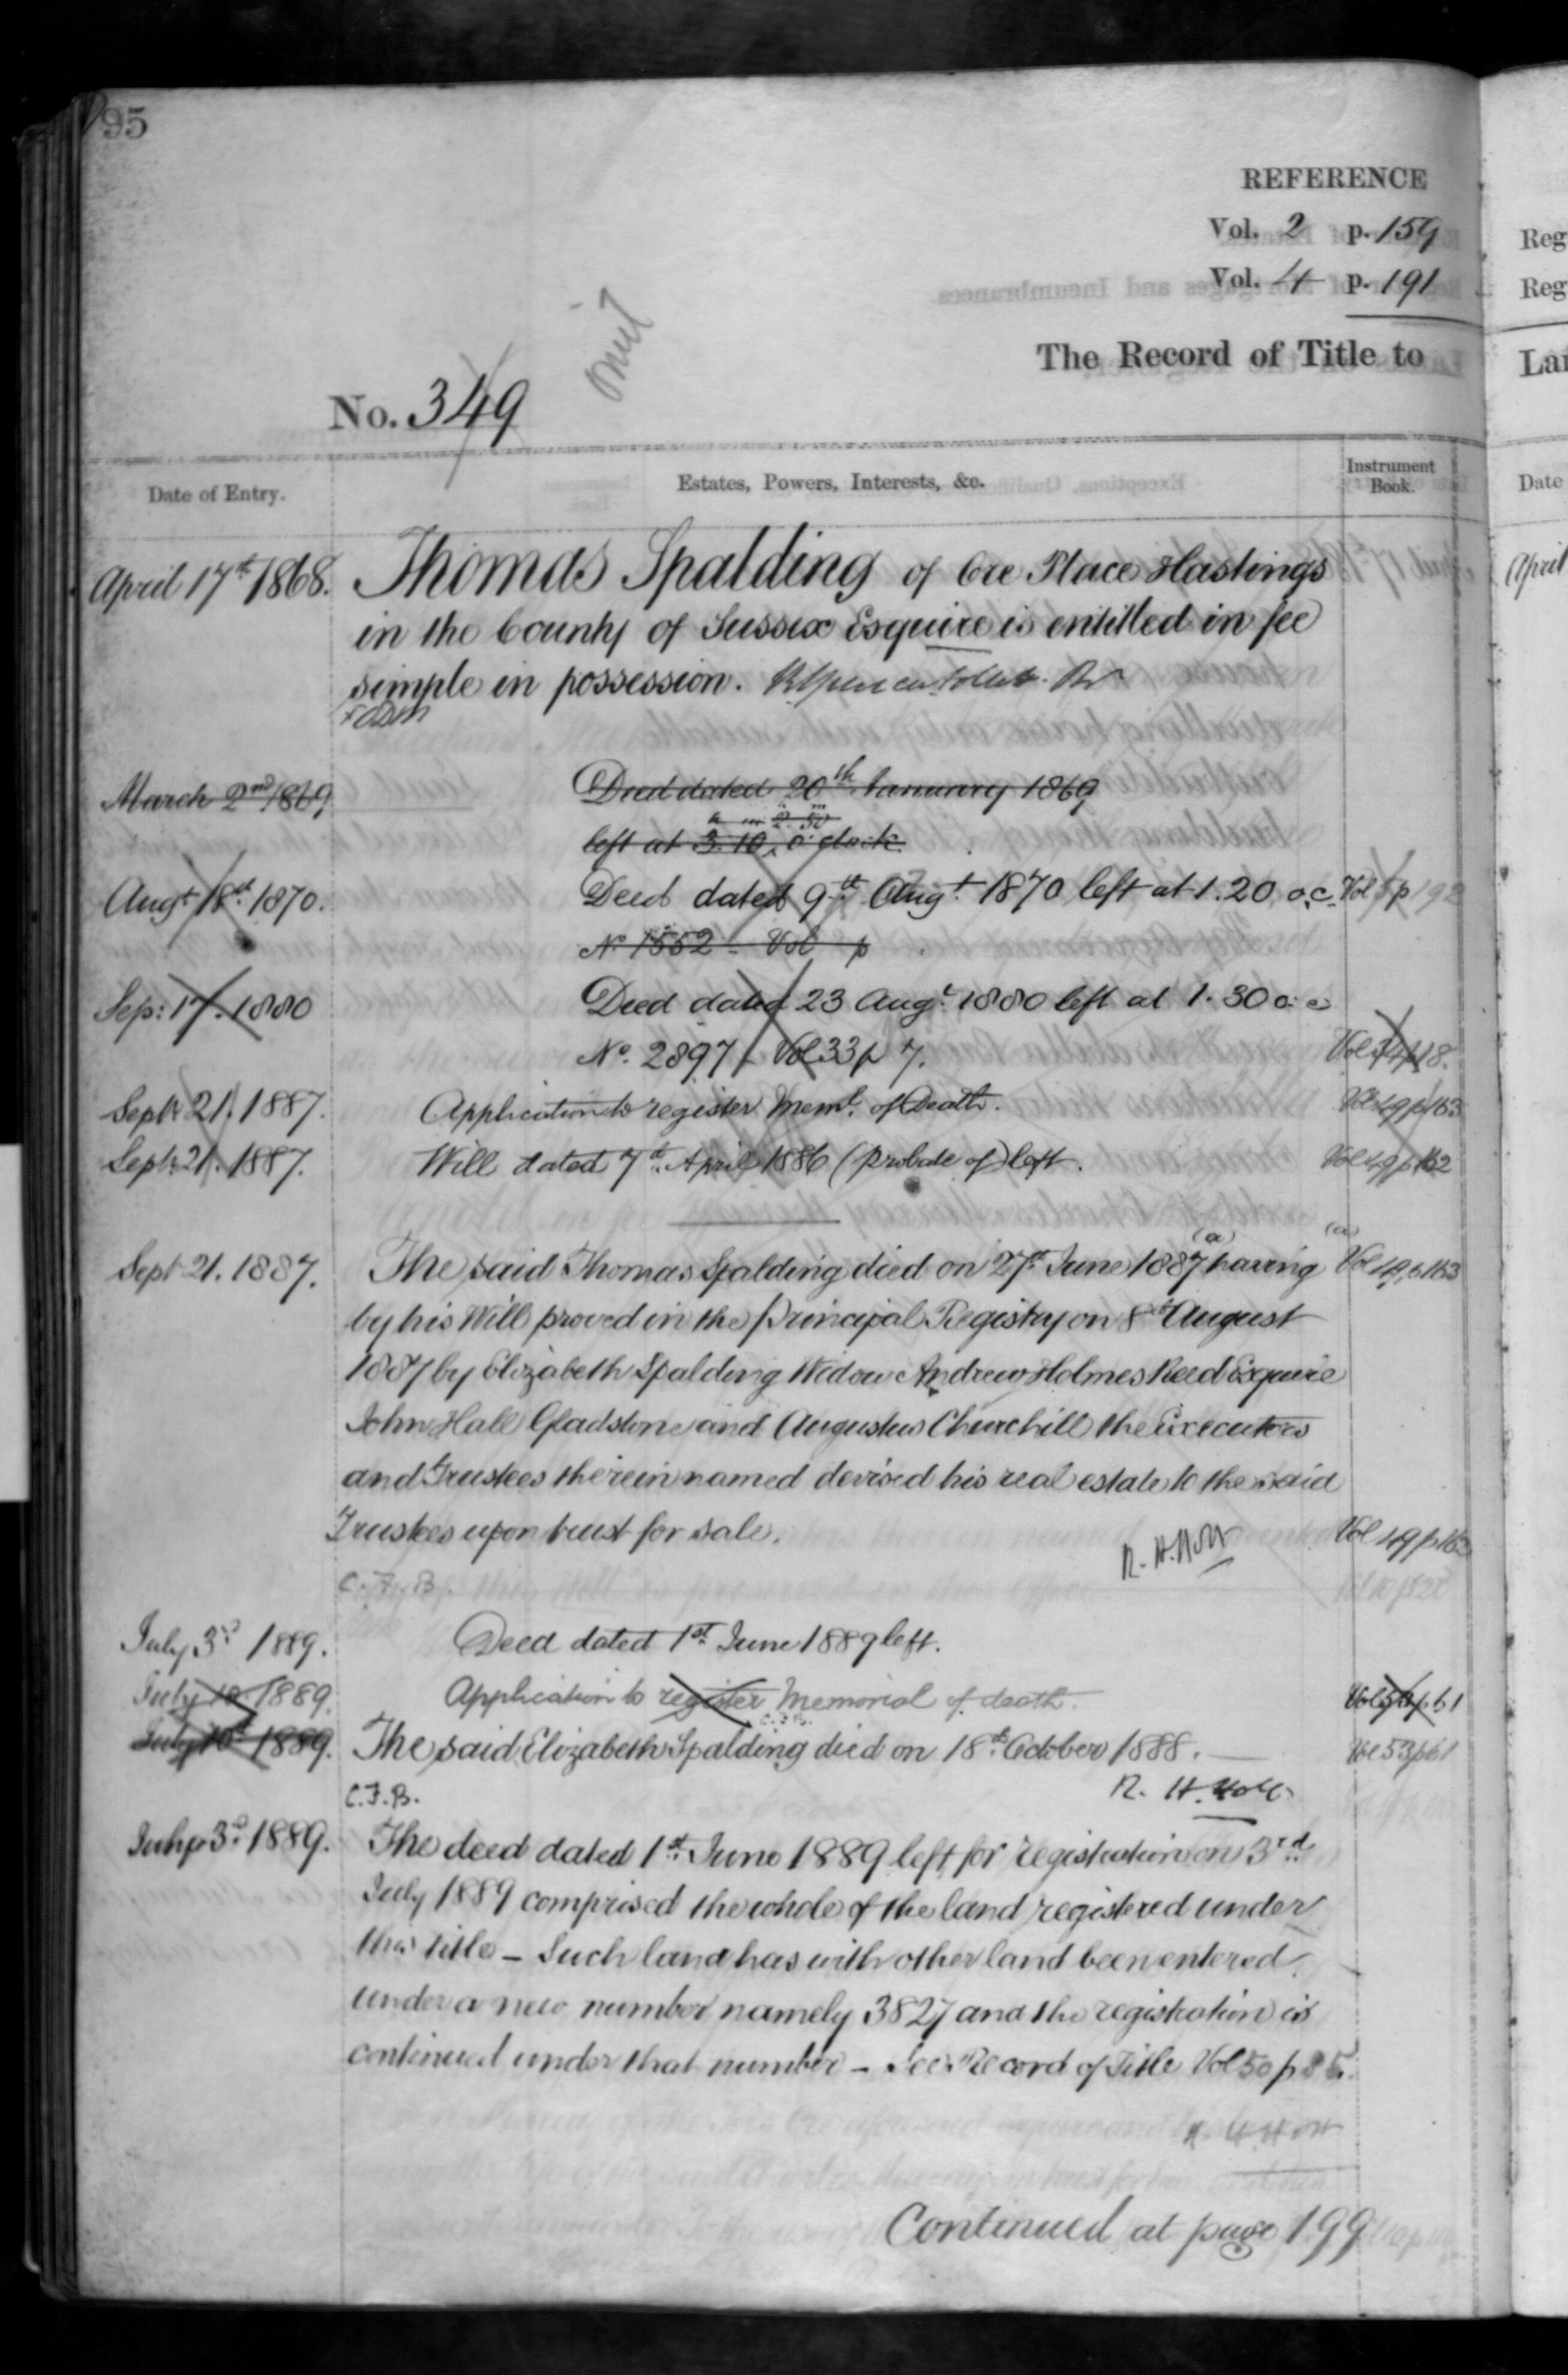 195
REFERENCE
Vol. 2 p. 159
Vol. 4 p. 191
The Record of Title to
omit
No. 349
Date of Entry.
Estates, Powers, Interests, &c.
Instrument Book.
April 17th 1868. Thomas Spalding of Ore Place Hastings
in the County of Sussex Esquire is entitled in fee
simple in possession.
March 2nd 1869 Deed dated 20th January 1869
left at 3.10, o'clock
Augt 18th 1870. Deed dated 9th Augt 1870 left at 1.20 o.c. Vol 5 p 192
No 1552 - Vol p
Sep: 17. 1880 Deed dated 23 Augt 1880 left at 1.30 o.c
No. 2897 - Vol 33 p 7.
Septr 21. 1887. Application to register Memt. of Death. Vol 49 p 163
Septr 21. 1887. Will dated 7th April 1886 (probate of) left. Vol 49 p 162
(a) (a)
Sept 21. 1887. The said Thomas Spalding died on 27th June 1887 having Vol 49 p 163
by his Will proved in the Principal Registry on 8th August
1887 by Elizabeth Spalding Widow Andrew Holmes Reed Esquire
John Hall Gladstone and Augustus Churchill the Executors
and Trustees therein named devised his real estate to the said
Trustees upon trust for sale. Vol 49 p 162
R. H. Holt
C.F.B.
July 3rd 1889. Deed dated 1st June 1889 left.
July 10. 1889. Application to register Memorial of death.
July 10th 1889. The said Elizabeth Spalding died on 18th October 1888. Vol 53 p 61
C.F.B. R. H. Holt
July 3rd 1889. The deed dated 1st June 1889 left for registration on 3rd
July 1889 comprised the whole of the land registered under
this title - Such land has with other land been entered
under a new number namely 3827 and the registration is
continued under that number - See Record of Title Vol 50 p 85.
R. H. Holt
Continued at page 199
Reg
Reg
Lan
Date
April